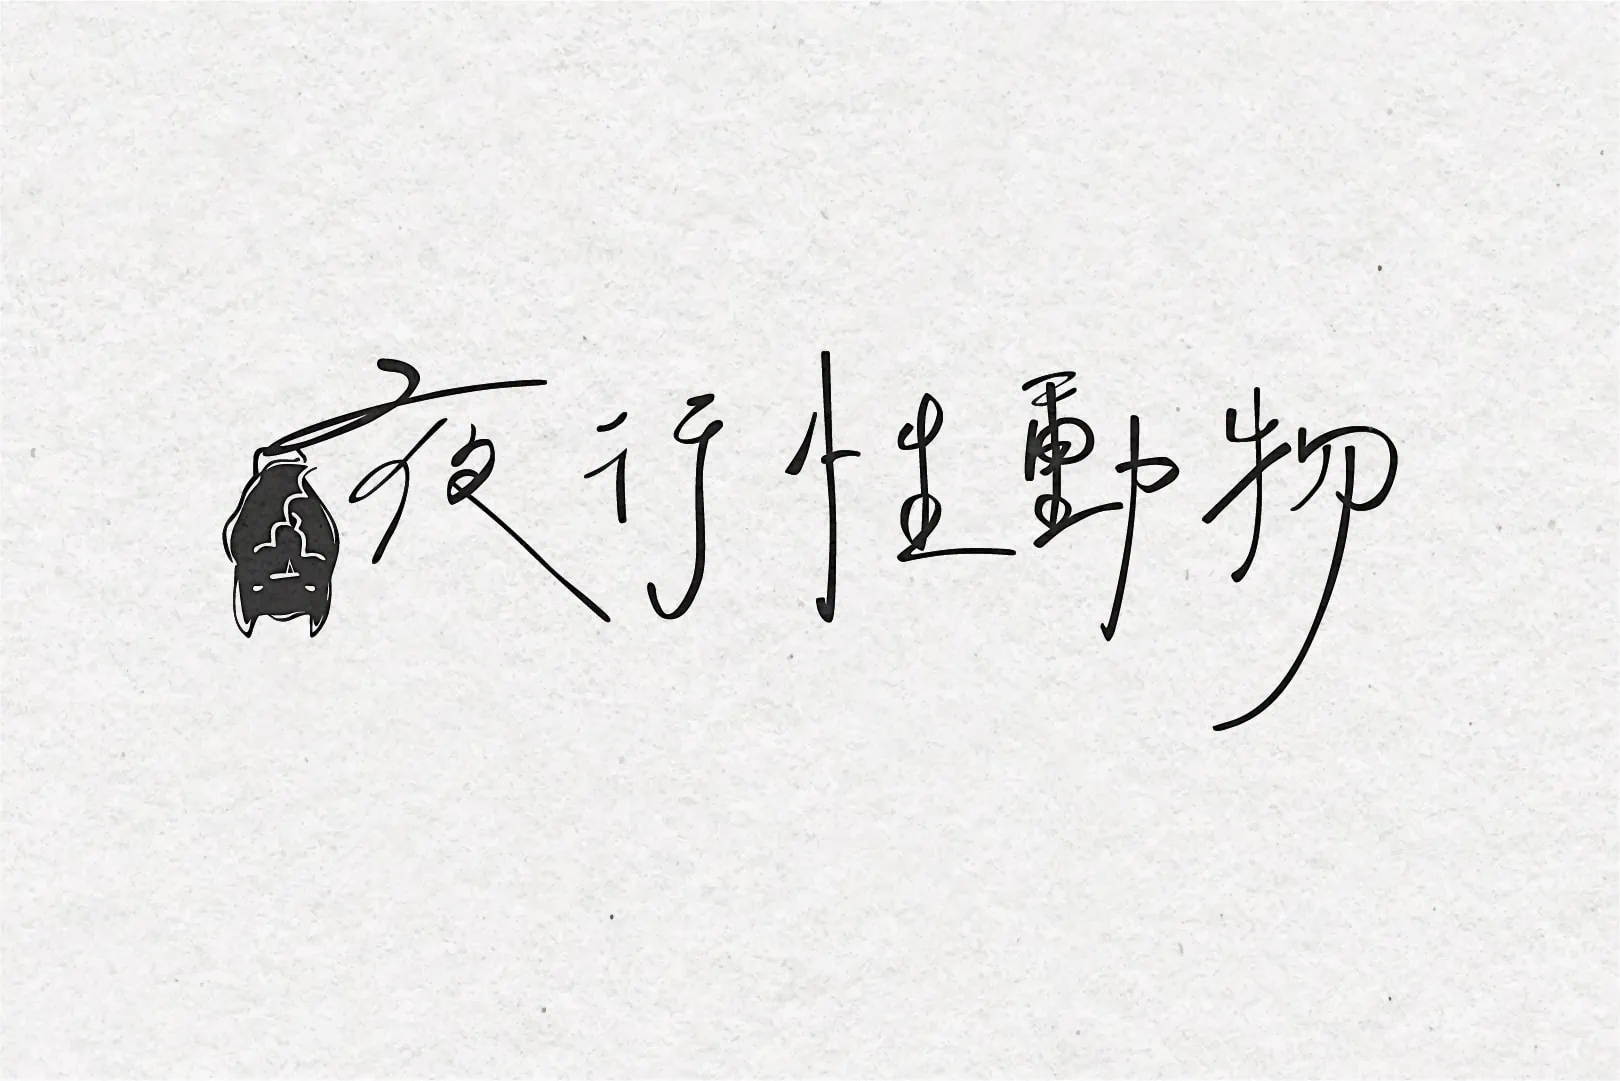 夜行性動物